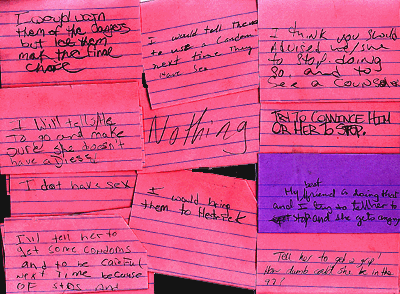 I would warn
them of the dangers
but let them
make the final
choice
I would tell them
to use a condom
next time they
have sex
I think you should
Advised me/she
to stop doing
so, and to
see a Counselor
I will tell
to go and make
sure she doesn't
have a
Nothing
TRY TO CONVINCE HIM
OR HER to STOP.
I dont have sex
I would bring
them to
My best friend is doing that
and I try to tell her to
stop and she gets angry
I'll tell her to
get some condoms
and to be careful
next time because
OF STDS and
Tell her to get a grip!
How dumb could she be in the